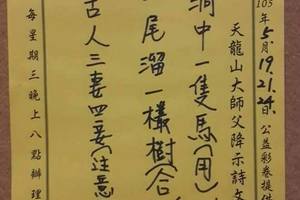 105年5月19.21.24.公益彩卷提供
天龍山大師父降示詩文
洞中一隻馬(甩)
尾溜一樣樹(合
古人三妻四妾(注意
每星期三晚上八點辦理